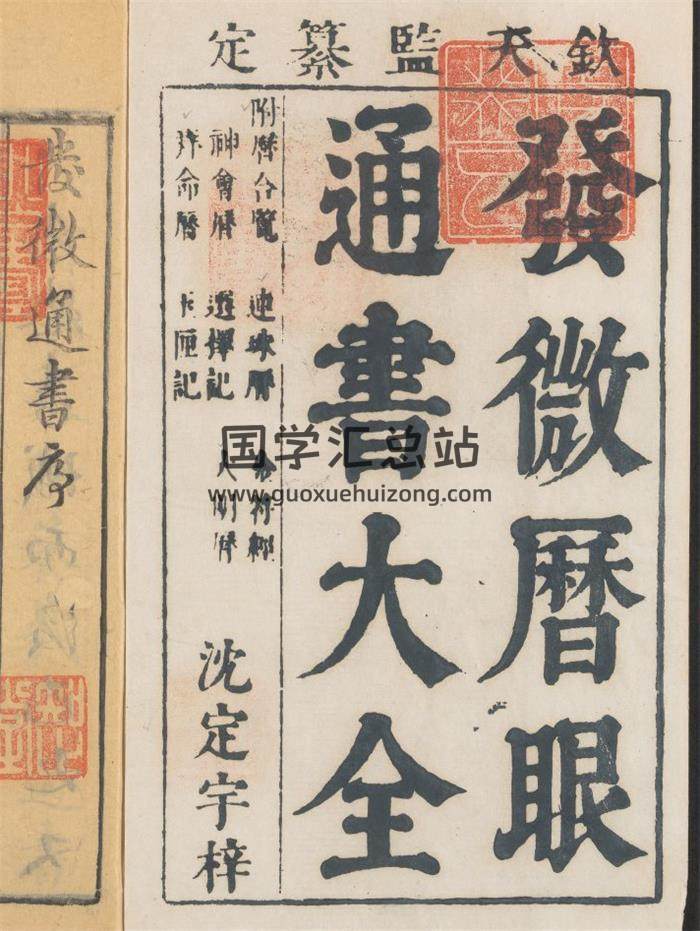 欽天監纂定
發微曆眼
通書大全
附曆合覽 連珠曆
神會曆 選擇記 大明曆
玉匣記
沈定宇梓
發微通書序
国学汇总站
www.guoxuehuizong.com